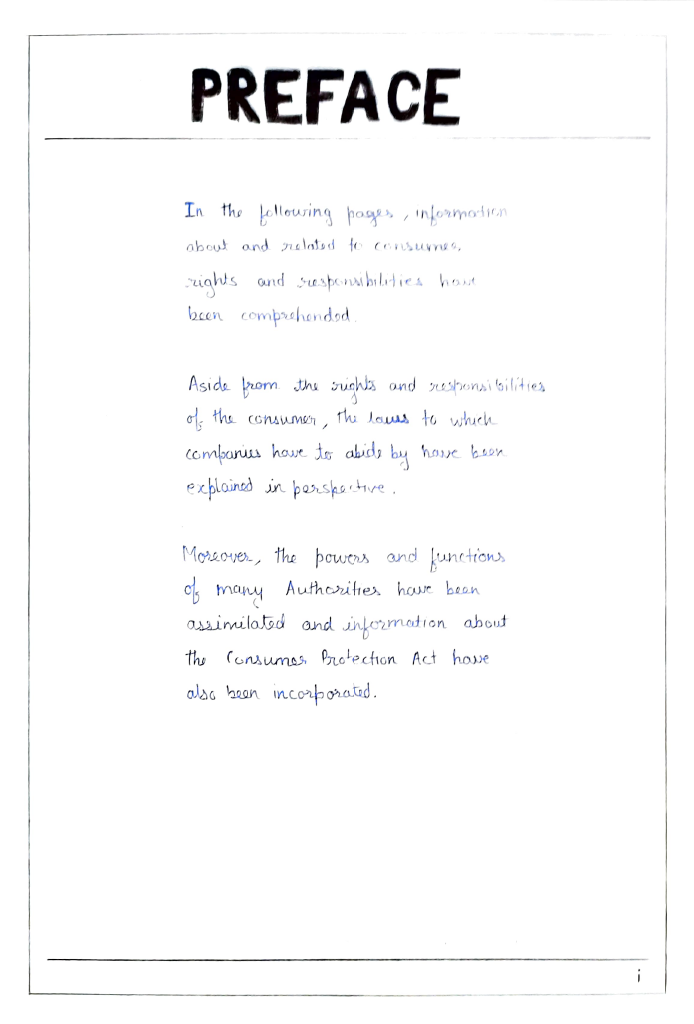 PREFACE
In the following pages, information
about and related to consumer
rights and responsibilities have
been comprehended.
Aside from the rights and responsibilities
of the consumer, the laws to which
companies have to abide by have been
explained in perspective.
Moreover, the powers and functions
of many Authorities have been
assimilated and information about
the Consumer Protection Act have
also been incorporated.
i